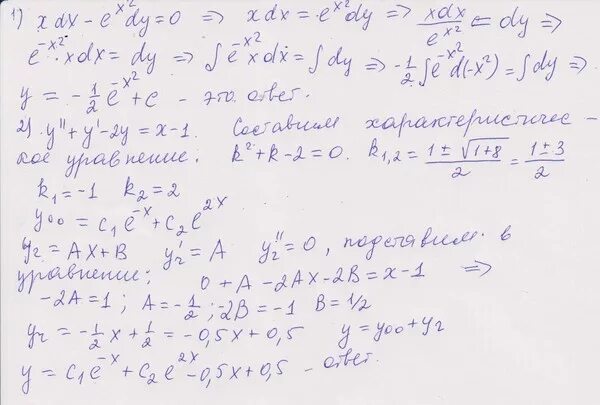 1) x dx - e^{x^2} dy = 0 ⇒ x dx = e^{x^2} dy ⇒ \frac{x dx}{e^{x^2}} = dy ⇒
e^{-x^2} · x dx = dy ⇒ ∫ e^{-x^2} x dx = ∫ dy ⇒ -\frac{1}{2} ∫ e^{-x^2} d(-x^2) = ∫ dy ⇒
y = -\frac{1}{2} e^{-x^2} + c - это ответ.
2) y'' + y' - 2y = x - 1 Составим характеристичес-
кое уравнение: k^2 + k - 2 = 0. k_{1,2} = \frac{1 ± \sqrt{1+8}}{2} = \frac{1 ± 3}{2}
k_1 = -1 k_2 = 2
y_{00} = c_1 e^{-x} + c_2 e^{2x}
y_2 = Ax + B y_2' = A y_2'' = 0, подставим в
уравнение: 0 + A - 2Ax - 2B = x - 1 ⇒
-2A = 1; A = -\frac{1}{2}; -2B = -1 B = 1/2
y_2 = -\frac{1}{2} x + \frac{1}{2} = -0,5x + 0,5 y = y_{00} + y_2
y = c_1 e^{-x} + c_2 e^{2x} - 0,5x + 0,5 - ответ.